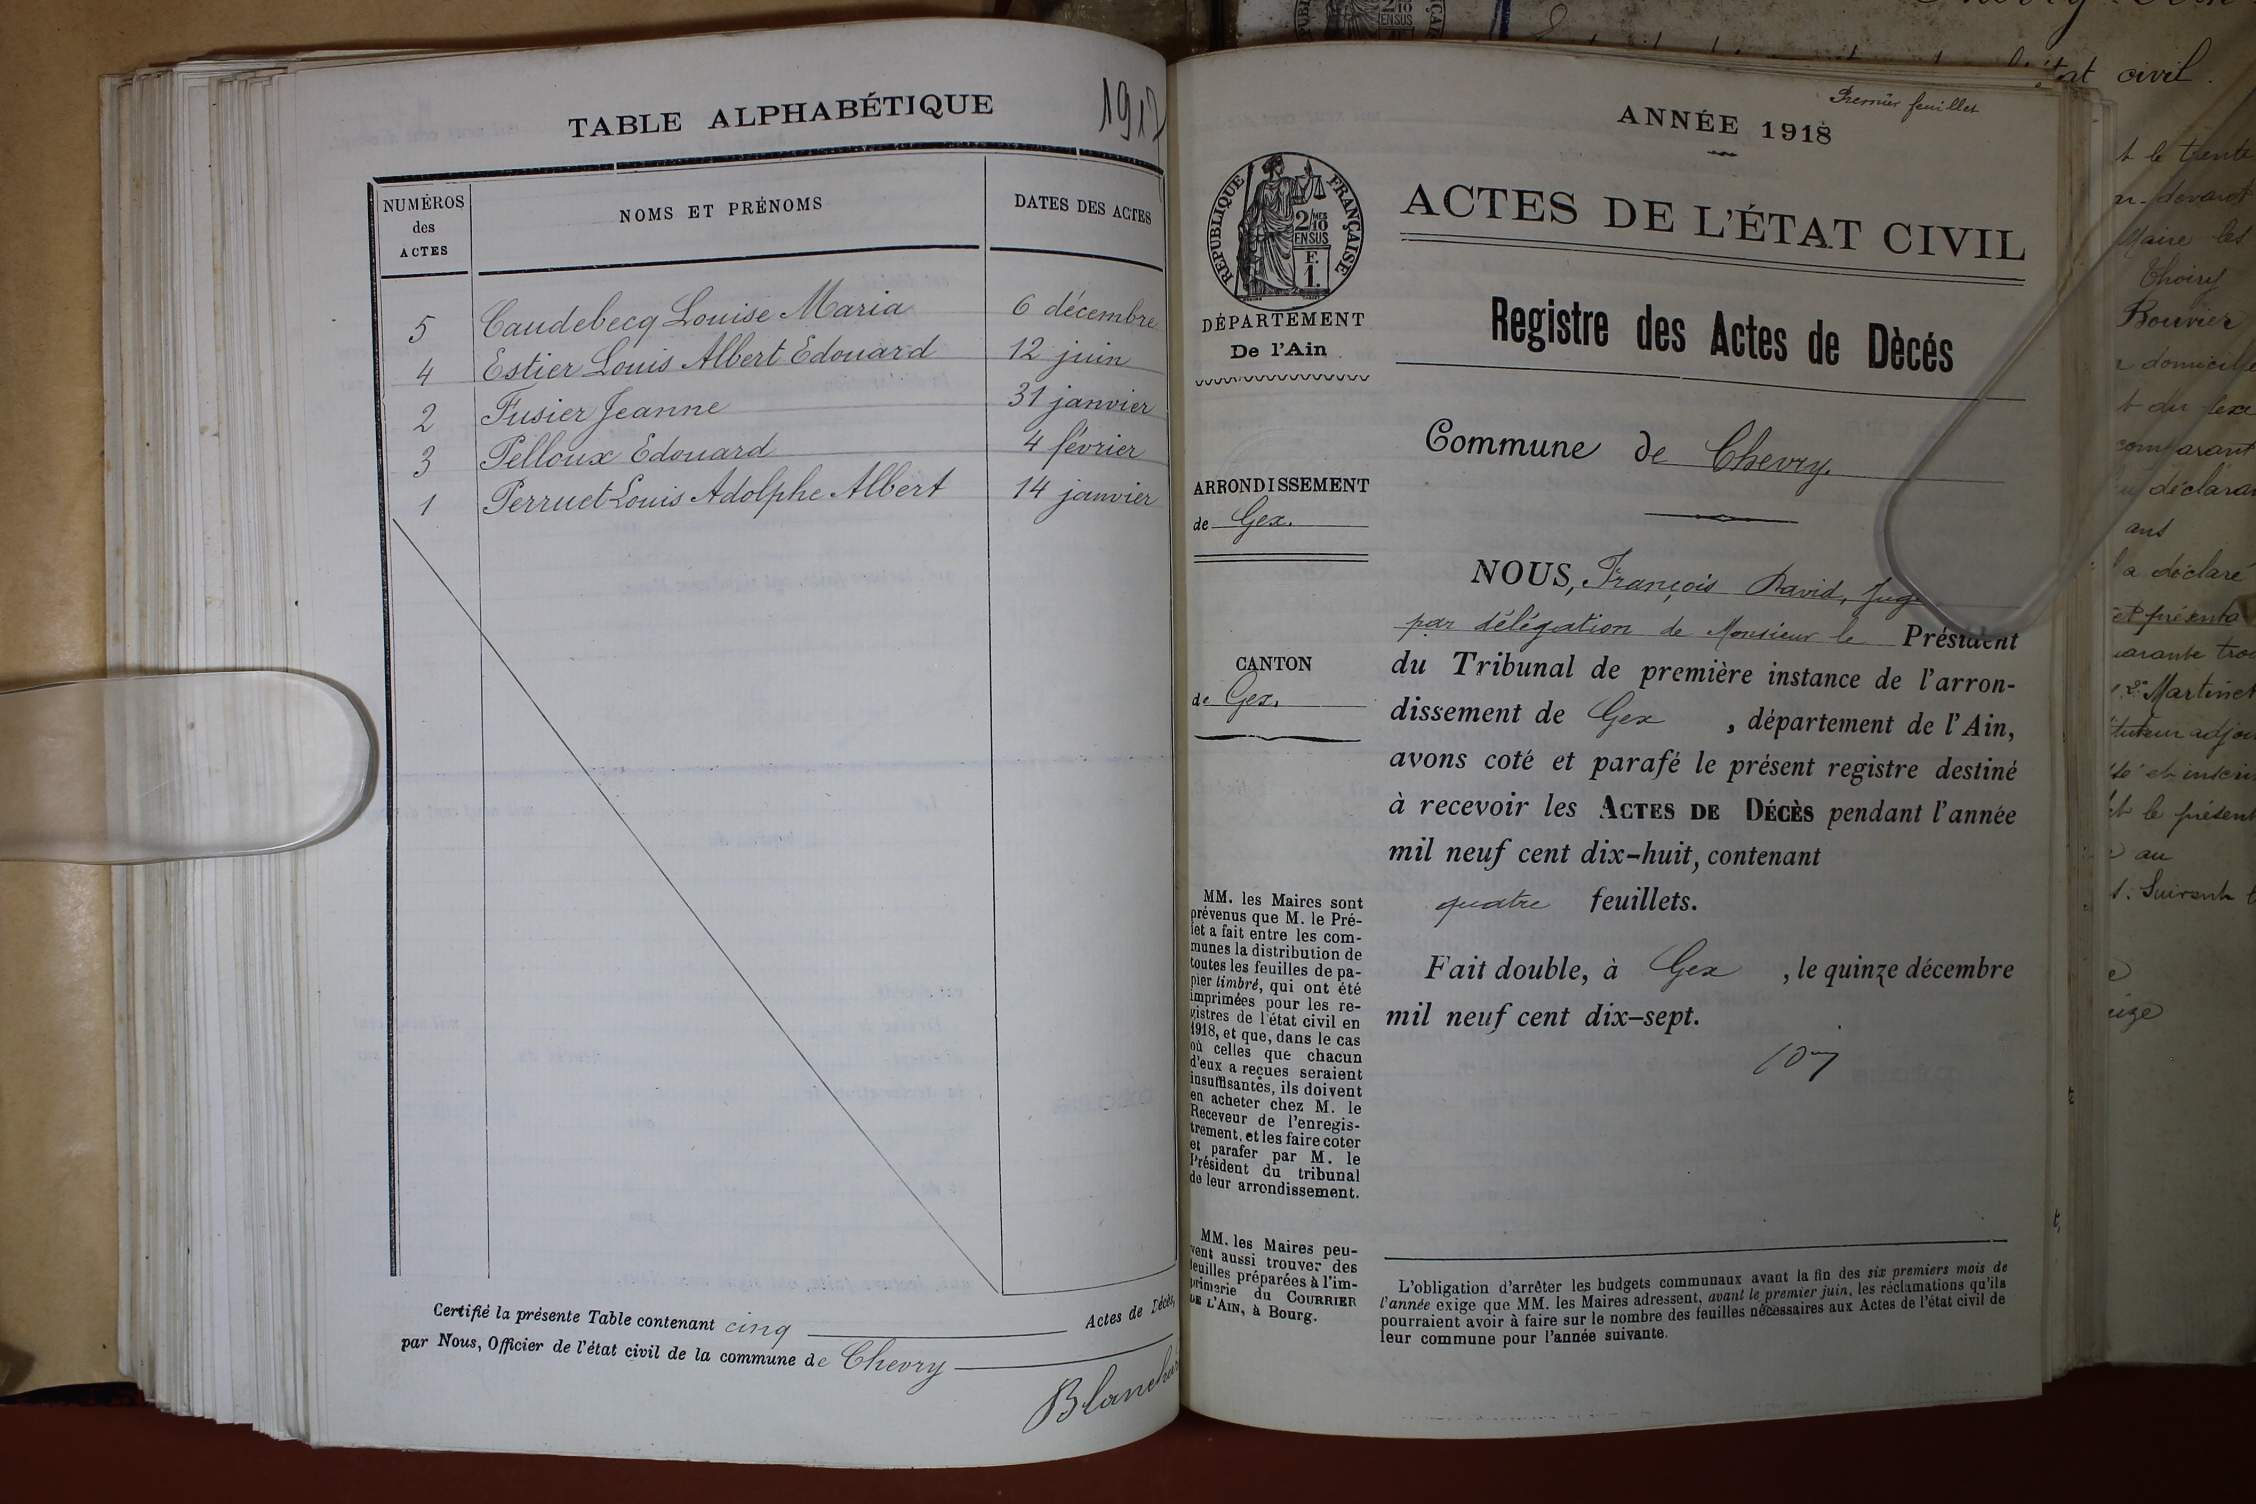 TABLE ALPHABÉTIQUE
1917
NUMÉROS des ACTES
NOMS ET PRÉNOMS
DATES DES ACTES
5 Caudebecq Louise Maria 6 décembre
4 Estier Louis Albert Edouard 12 juin
2 Fusier Jeanne 31 janvier
3 Pelloux Edouard 4 février
1 Perruet Louis Adolphe Albert 14 janvier
Certifié la présente Table contenant cinq Actes de Décès,
par Nous, Officier de l'état civil de la commune de Chevry
Premier feuillet
ANNÉE 1918
RÉPUBLIQUE FRANÇAISE
2/10 MES
EN SUS
F.
1.
DÉPARTEMENT
De l'Ain
ARRONDISSEMENT
de Gex.
CANTON
de Gex.
MM. les Maires sont
prévenus que M. le Pré-
fet a fait entre les com-
munes la distribution de
toutes les feuilles de pa-
pier timbré, qui ont été
imprimées pour les re-
gistres de l'état civil en
1918, et que, dans le cas
où celles que chacun
d'eux a reçues seraient
insuffisantes, ils doivent
en acheter chez M. le
Receveur de l'enregis-
trement, et les faire coter
et parafer par M. le
Président du tribunal
de leur arrondissement.
MM. les Maires peu-
vent aussi trouver des
feuilles préparées à l'im-
primerie du COURRIER
DE L'AIN, à Bourg.
ACTES DE L'ÉTAT CIVIL
Registre des Actes de Dècés
Commune de Chevry.
NOUS, François David, Jug
par délégation de Monsieur le Président
du Tribunal de première instance de l'arron-
dissement de Gex , département de l'Ain,
avons coté et parafé le présent registre destiné
à recevoir les ACTES DE DÉCÈS pendant l'année
mil neuf cent dix-huit, contenant
quatre feuillets.
Fait double, à Gex , le quinze décembre
mil neuf cent dix-sept.
L'obligation d'arrêter les budgets communaux avant la fin des six premiers mois de
l'année exige que MM. les Maires adressent, avant le premier juin, les réclamations qu'ils
pourraient avoir à faire sur le nombre des feuilles nécessaires aux Actes de l'état civil de
leur commune pour l'année suivante.
civil.
t le trente
Maire les
Thoiry
Bouvier
domicilié
comparant
déclara
ans
a déclaré
et présenta
Martinet
et inscri
t le présent
au
Suivent